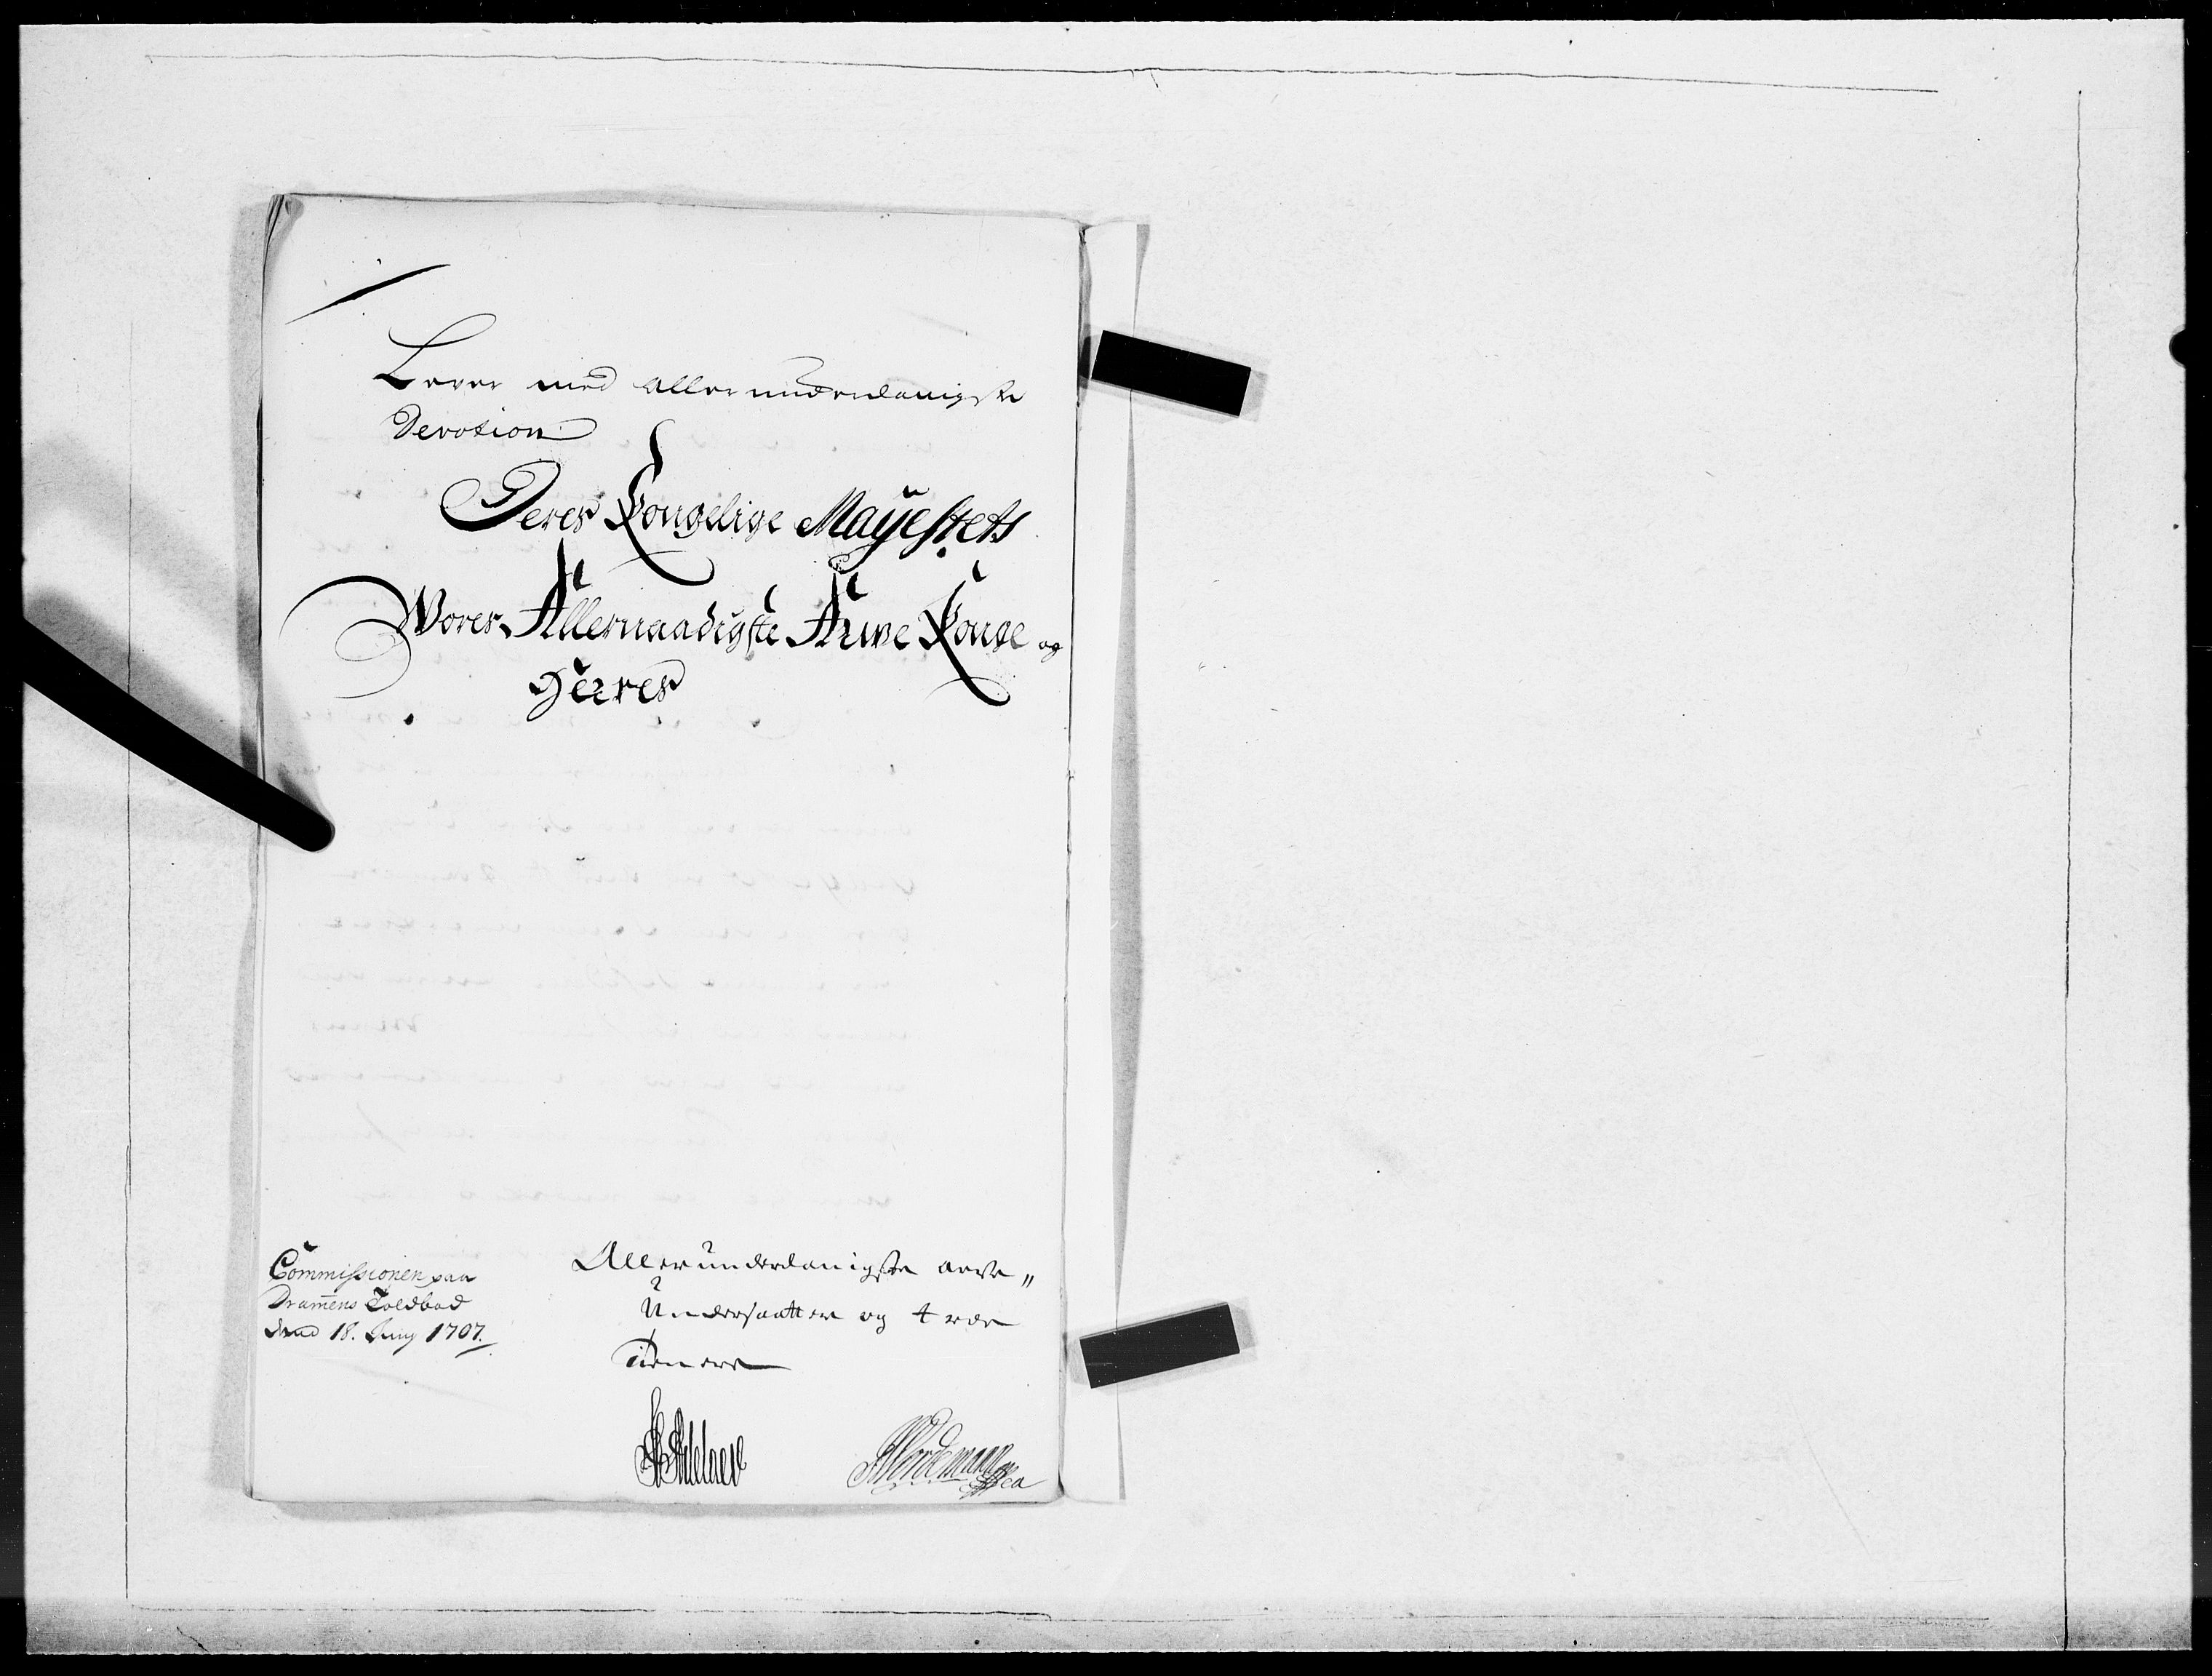 Lever med allerunderdanigste
Devotion
Deres Kongelige Mayestets
Wores Allernaadigste Arwe Konge og
Herres
Commissionen paa
Dram̄ens Toldbod
dend 18. Juny 1707.
Allerunderdanigste arve„
Undersaatter og troe
Tienere
Nordemann